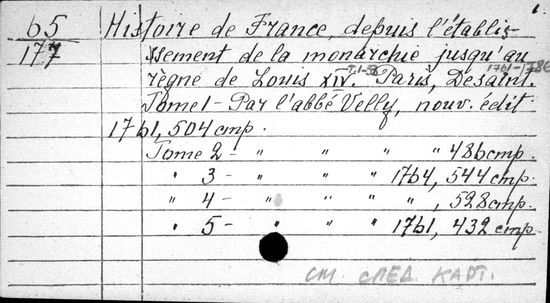 1.
65
177
Histoire de France, depuis l'établis-
ssement de la monarchie jusqu'au
т. 1-58 1761-1786
règne de Louis XIV. Paris, Desaint.
Tome 1 - Par l'abbé Velly, nouv. édit
1761, 504 стр.
Tome 2 - " " " " 486 стр.
" 3 - " " " 1764, 544 стр.
" 4 - " " " ", 528 стр.
" 5 - " " " 1761, 432 стр.
см. след карт.